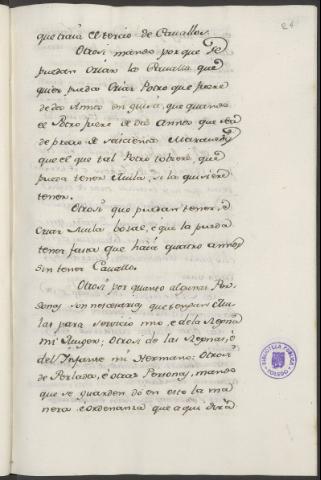 24
que traia el tercio de Cavallos.
Otrosi mando porque se
puedan criar los Cavallos que
quier pueda criar Potro que pasare
de dos Annos en guisa, que quando
el Potro fuere de dos Annos que sea
de precio de seiscientos Maravedis
que el que tal Potro tobiere, que
pueda tener Mula, si la quisiere
tener.
Otrosi que puedan tener, e
criar Mula bozal, e que la pueda
tener fasta que haia quatro annos
sin tener Cavallo.
Otrosi por quanto algunas Per
sonas son necesarias que tengan Mu
las para servicio mio, e de la Reyna
mi Muger; Otrosi de las Reynas, e
del Infante mi Hermano: Otrosi
de Perlados, e otras Personas, mando
que se guarden do en esto la ma
nera, e ordenanza que aqui dirá
BIBLIOTECA PUBLICA
TOLEDO